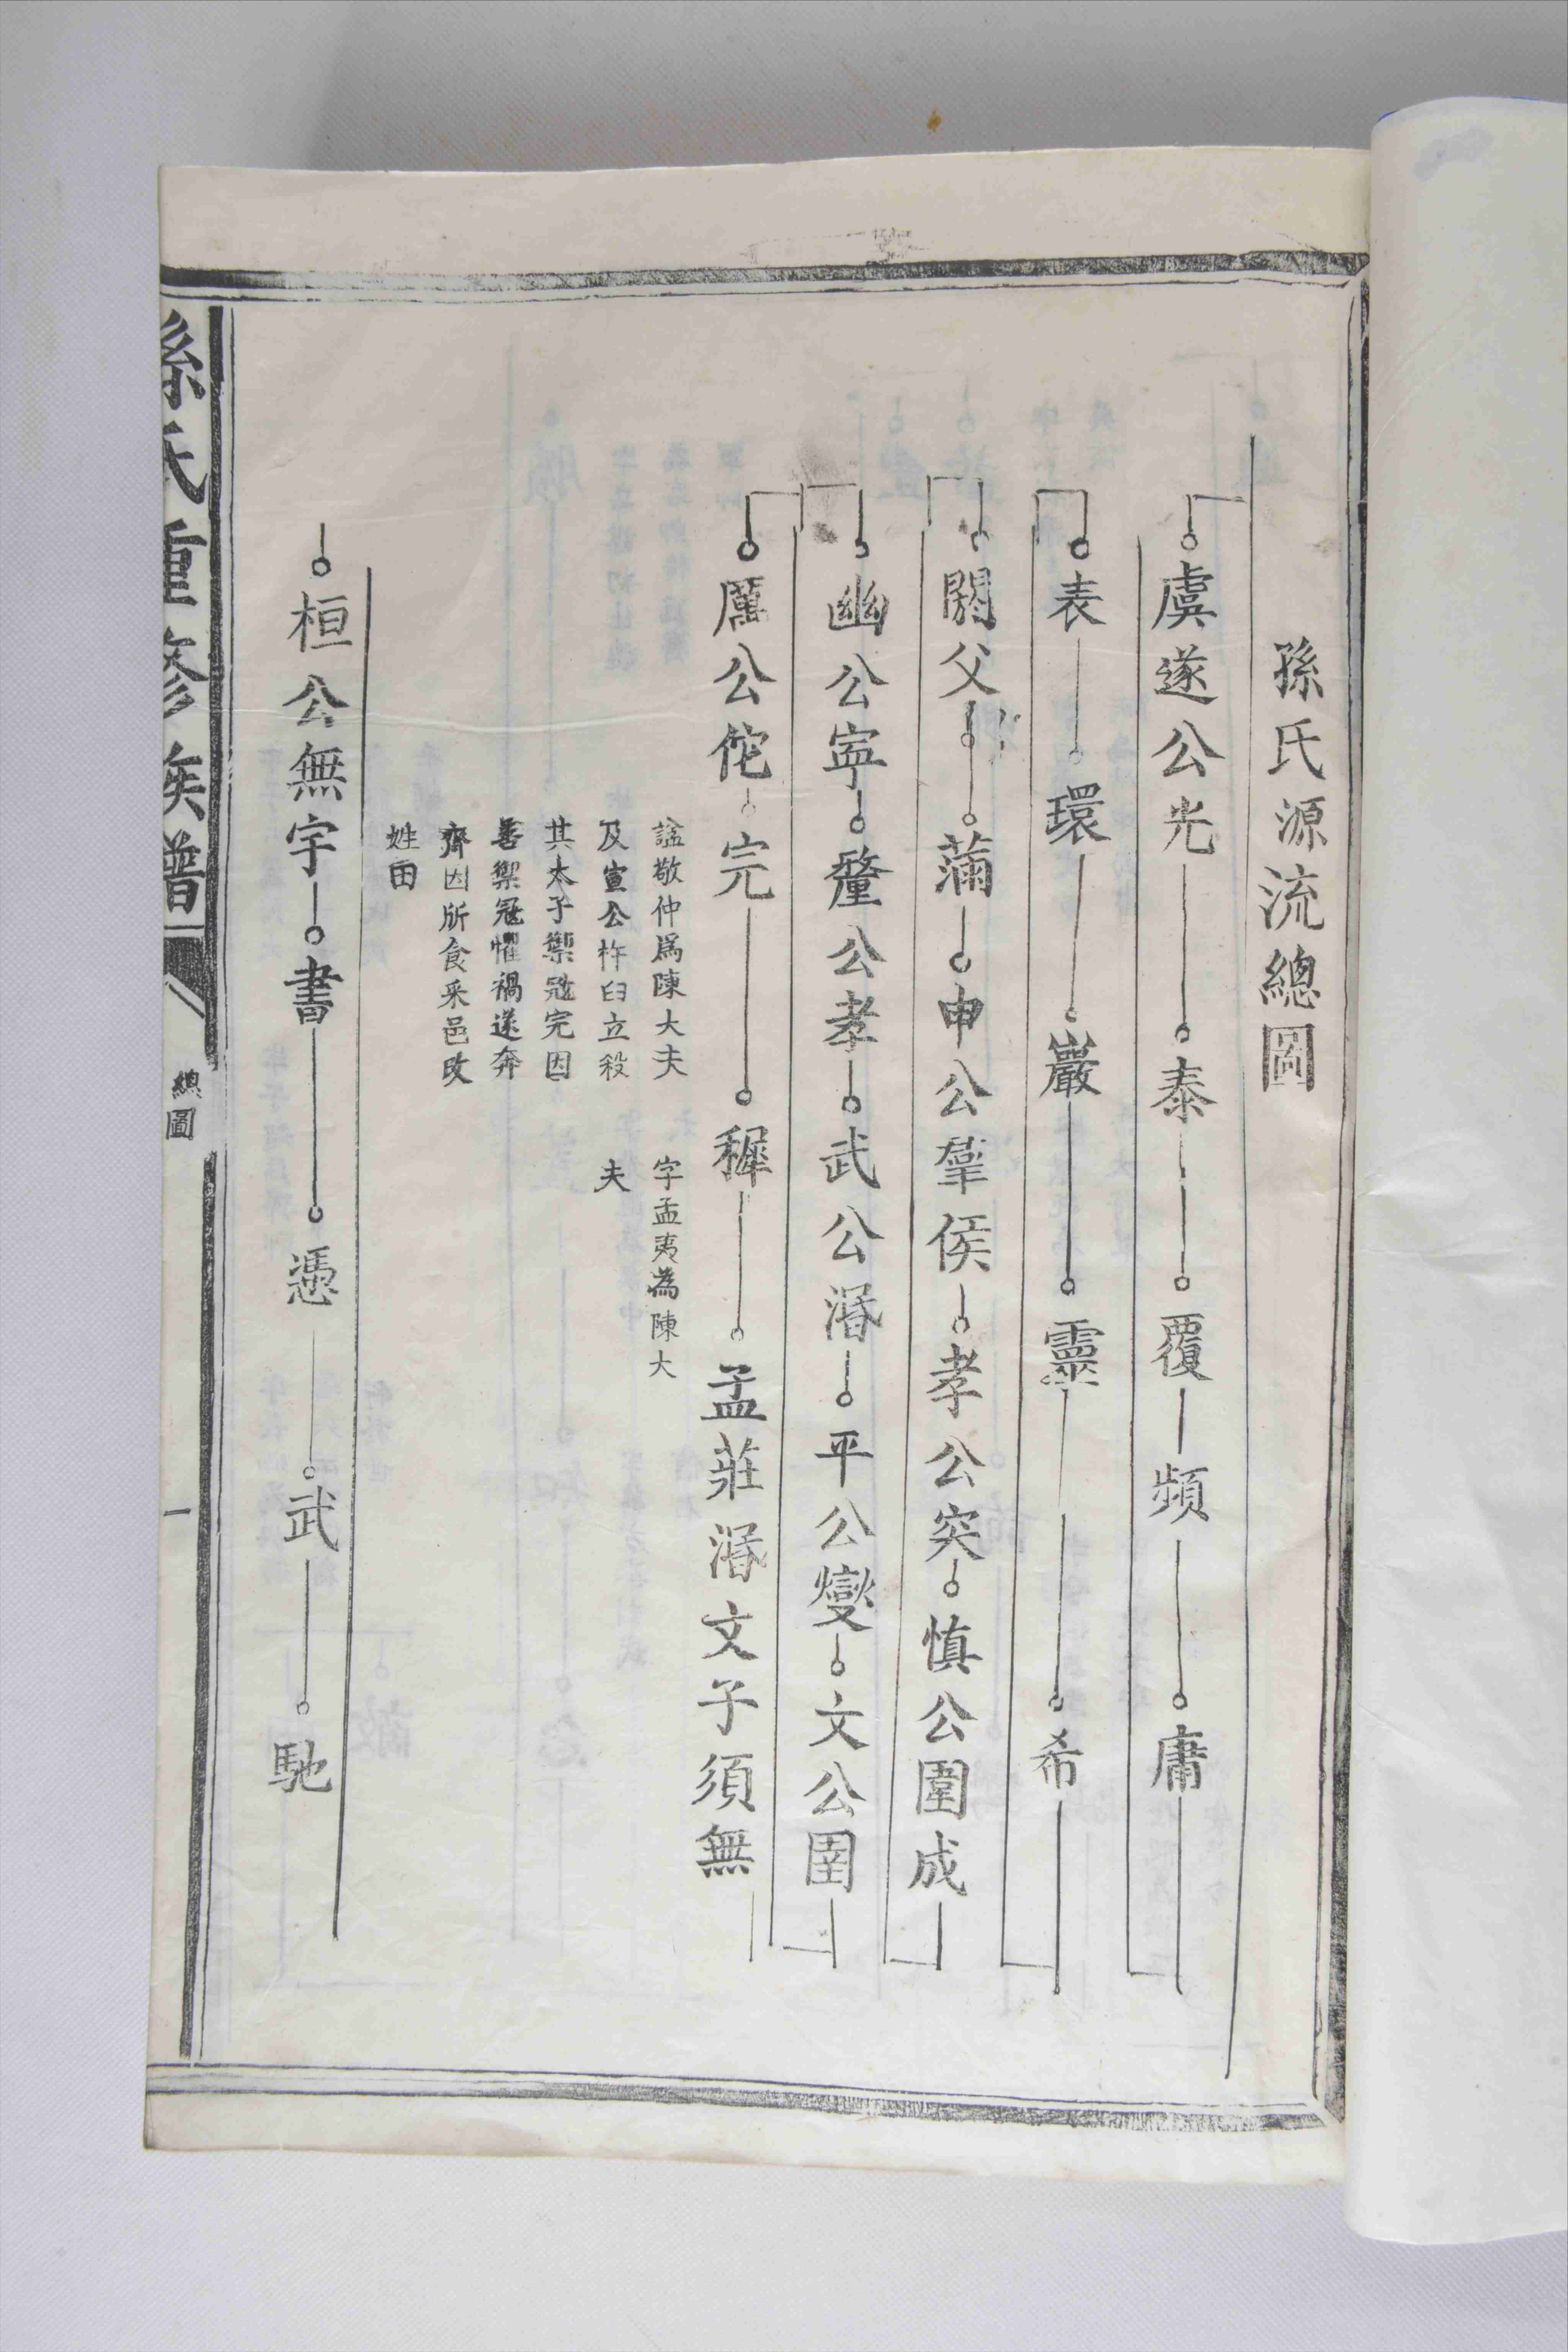 孫氏源流總圖
虞遂公光 泰 覆 頻 庸
表 環 巖 靈 希
閼父 滿 申公羣侯 孝公突 慎公圍成
幽公寧 釐公孝 武公湣 平公燮 文公圉
厲公佗 完 穉 孟莊湣文子須無
諡敬仲爲陳大夫
及宣公杵臼立殺
其太子禦冦完因
善禦冦懼禍遂奔
齊因所食采邑改
姓田
字孟夷為陳大
夫
桓公無宇 書 憑 武 馳
孫氏重修族譜
總圖
一